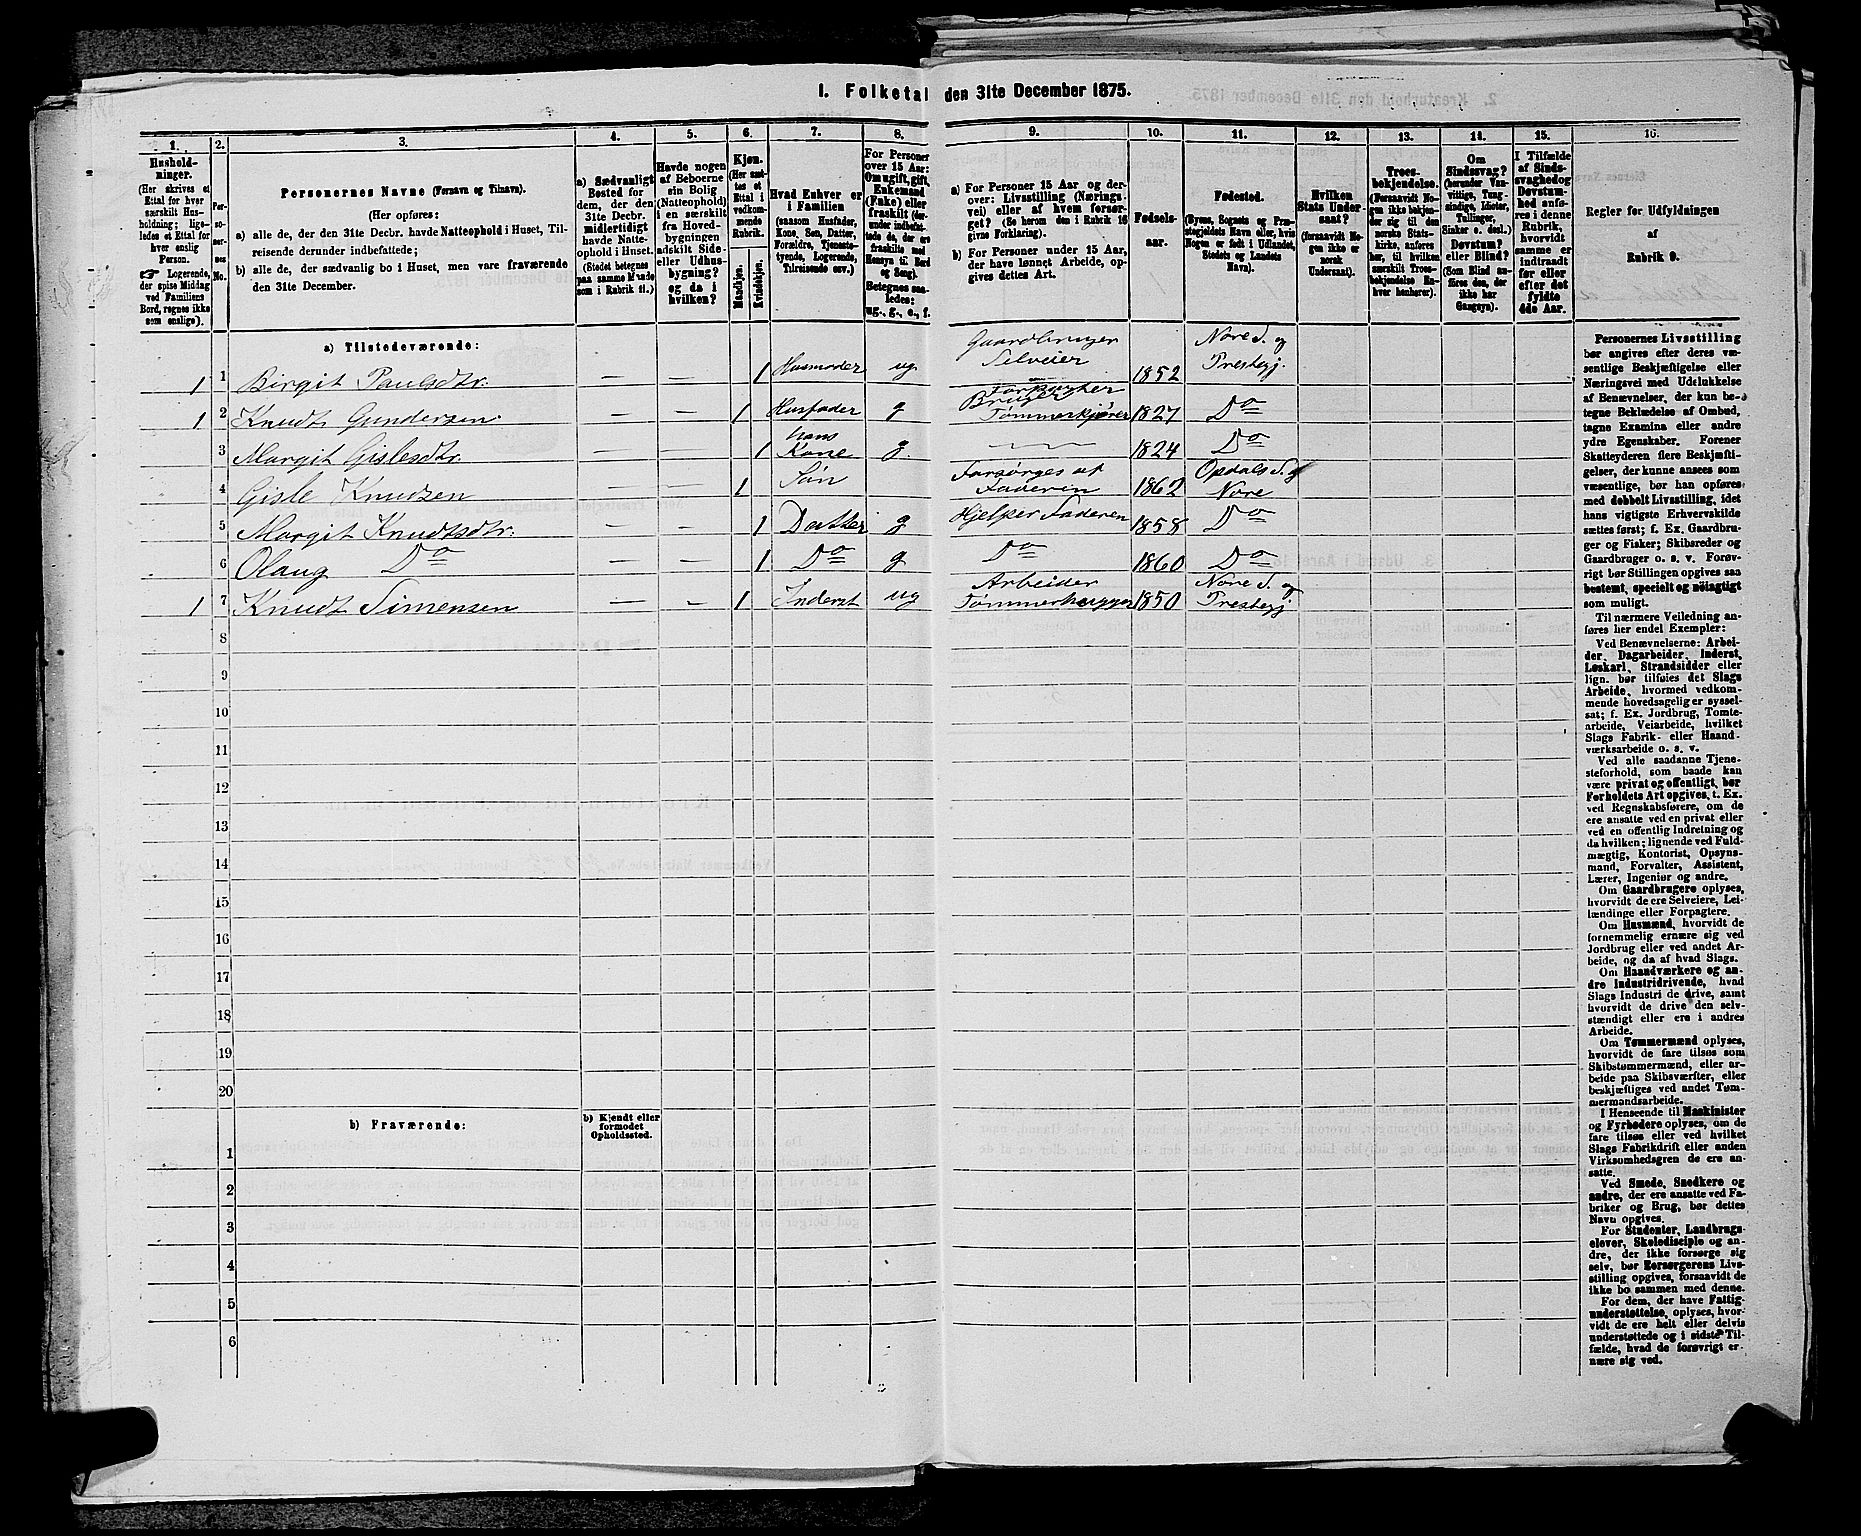 I. Folketal den 31te December 1875.
1.
Hushold-
ninger.
(Her skrives et
Ettal for hver
særskilt Hus-
holdning; lige-
ledes et Ettal for
hver enslig
Person.
☞ Logerende,
der spise Middag
ved Familiens
Bord, regnes ikke
som enslige).
2.
Per-
so-
ner-
nes
No.
3.
Personernes Navne (Fornavn og Tilnavn).
(Her opføres:
a) alle de, der den 31te Decbr. havde Natteophold i Huset, Til-
reisende derunder indbefattede;
b) alle de, der sædvanlig bo i Huset, men vare fraværende
den 31te December.
4.
a) Sædvanligt
Bosted for
dem, der den
31te Decbr.
midlertidigt
havde Natte-
ophold i Huset.
(Stedet betegnes
paa samme Maade
som i Rubrik 11.)
5.
Havde nogen
af Beboerne
ein Bolig
(Natteophold)
i en særskilt
fra Hoved-
bygningen
adskilt Side-
eller Udhus-
bygning?
og da i
hvilken?
6.
Kjøn.
(Her sæt-
tes et
Ettal i
vedkom-
mende
Rubrik.
Mandkjøn.
Kvindekjøn.
7.
Hvad Enhver er
i Familien
(saasom Husfader,
Kone, Søn, Datter,
Forældre, Tjeneste-
tyende, Logerende,
Tilreisende osv.)
8.
For Personer
over 15 Aar:
Om ugift, gift,
Enkemand
(Enke) eller
fraskilt (der-
under indbefat-
tede de, der ere
fraskilte med
Hensyn til Bord
og Seng).
Betegnes saa-
ledes:
ug., g., e., f.
9.
a) For Personer 15 Aar og der-
over: Livsstilling (Nærings-
vei) eller af hvem forsør-
get? (Se herom den i Rubrik 16
givne Forklaring).
b) For Personer under 15 Aar,
der have lønnet Arbeide, op-
gives dettes Art.
10.
Fødsels-
aar.
11.
Fødested.
(Byens, Sognets og Præ-
stegjeldets Navn eller, hvis
Nogen er født i Udlandet,
Stedets og Landets
Navn).
12.
Hvilken
Stats Under-
saat?
(forsaavidt No-
gen ikke er
norsk
Undersaat).
13.
Troes-
bekjendelse.
(Forsaavidt No-
gen ikke bekjen-
der sig til den
norske Stats-
kirke, anføres
her, til hvilken
særskilt Troes-
bekjendelse En-
hver henhører).
14.
Om
Sindssvag?
(herunder Van-
vittige, Tung-
sindige, Idioter,
Tullinger,
Sinker o. desl.)
Døvstum?
eller Blind?
(Som Blind an-
føres den, der
ikke har
Gangsyn).
15.
I Tilfælde
af Sinds-
svaghed og
Døvstum-
hed anfø-
res i denne
Rubrik,
hvorvidt
samme er
indtraadt
før eller
efter det
fyldte
4de Aar.
16.
Regler for Udfyldningen
af
Rubrik 9.
a) Tilstedeværende:
1 1 Birgit Paulsdtr. — — 1 Husmoder ug. Gaardbruger Selveier 1852 Nore S. og Prestegj.
1 2 Knudt Gundersen — — 1 Husfader g Forpagter Bruger Tømmerkjører 1827 Do
3 Margit Gislesdtr. — — 1 hans Kone g. — 1824 Do
4 Gisle Knudsen — — 1 Søn Forsørges af Faderen 1862 Opdals S. og Nore
5 Margit Knudtsdtr. — — 1 Datter g Hjelper Faderen 1858 Do
6 Olaug Do — — 1 Do g Do 1860 Do
1 7 Knudt Simensen — — 1 Inderst ug Arbeider Tømmerhugger 1850 Nore S. og Prestegj
8
9
10
11
12
13
14
15
16
17
18
19
20
b) Fraværende:
b) Kjendt eller
formodet
Opholdssted.
1
2
3
4
5
6
Personernes Livsstilling
bør angives efter deres væ-
sentlige Beskjæftigelse eller
Næringsvei med Udelukkelse
af Benævnelser, der kun be-
tegne Beklædelse af Ombud,
tagne Examina eller andre
ydre Egenskaber. Forener
Skatteyderen flere Beskjæfti-
gelser, der kunne ansees som
væsentlige, bør han opføres
med dobbelt Livsstilling, idet
hans vigtigste Erhvervskilde
sættes først; f. Ex. Gaardbru-
ger og Fisker; Skibsreder og
Gaardbruger o. s. v. Forøv-
rigt bør Stillingen opgives saa
bestemt, specielt og nøiagtigt
som muligt.
Til nærmere Veiledning an-
føres her endel Exempler:
Ved Benævnelserne: Arbei-
der, Dagarbeider, Inderst,
Løskarl, Strandsidder eller
lign. bør tilføies det Slags
Arbeide, hvormed vedkom-
mende hovedsagelig er syssel-
sat; f. Ex. Jordbrug, Tomte-
arbeide, Veiarbeide, hvilket
Slags Fabrik- eller Haand-
værksarbeide o. s. v.
Ved alle saadanne Tjene-
steforhold, som baade kan
være privat og offentligt, bør
Forholdets Art opgives, t. Ex.
ved Regnskabsførere, om de
ere ansatte ved en privat eller
ved en offentlig Indretning og
da hvilken; lignende ved Fuld-
mægtig, Kontorist, Opsyns-
mand, Forvalter, Assistent,
Lærer, Ingeniør og andre.
Om Gaardbrugere oplyses,
hvorvidt de ere Selveiere, Lei-
lændinge eller Forpagtere.
Om Husmænd, hvorvidt de
fornemmelig ernære sig ved
Jordbrug eller ved andet Ar-
beide, og da af hvad Slags.
Om Haandværkere og an-
dre Industridrivende, hvad
Slags Industri de drive, samt
hvorvidt de drive den selv-
stændigt eller ere i andres
Arbeide.
Om Tømmermænd oplyses,
hvorvidt de fare tilsøs som
Skibstømmermænd, eller ar-
beide paa Skibsværfter, eller
beskjæftiges ved andet Tøm-
mermandsarbeide.
I Henseende til Maskinister
og Fyrbødere oplyses, om de
fare tilsøs eller ved hvilket
Slags Fabrikdrift eller anden
Virksomhedsgren de ere an-
satte.
Ved Smede, Snedkere og
andre, der ere ansatte ved Fa-
briker og Brug, bør dettes
Navn opgives.
For Studenter, Landbrugs-
elever, Skoledisciple og an-
dre, der ikke forsørge sig
selv, bør Forsørgerens Livs-
stilling opgives, forsaavidt de
ikke bo sammen med denne.
For dem, der have Fattig-
understøttelse, oplyses, hvor-
vidt de ere helt eller delvis
understøttede og i sidste Til-
fælde, hvad de forøvrigt er-
nære sig ved.